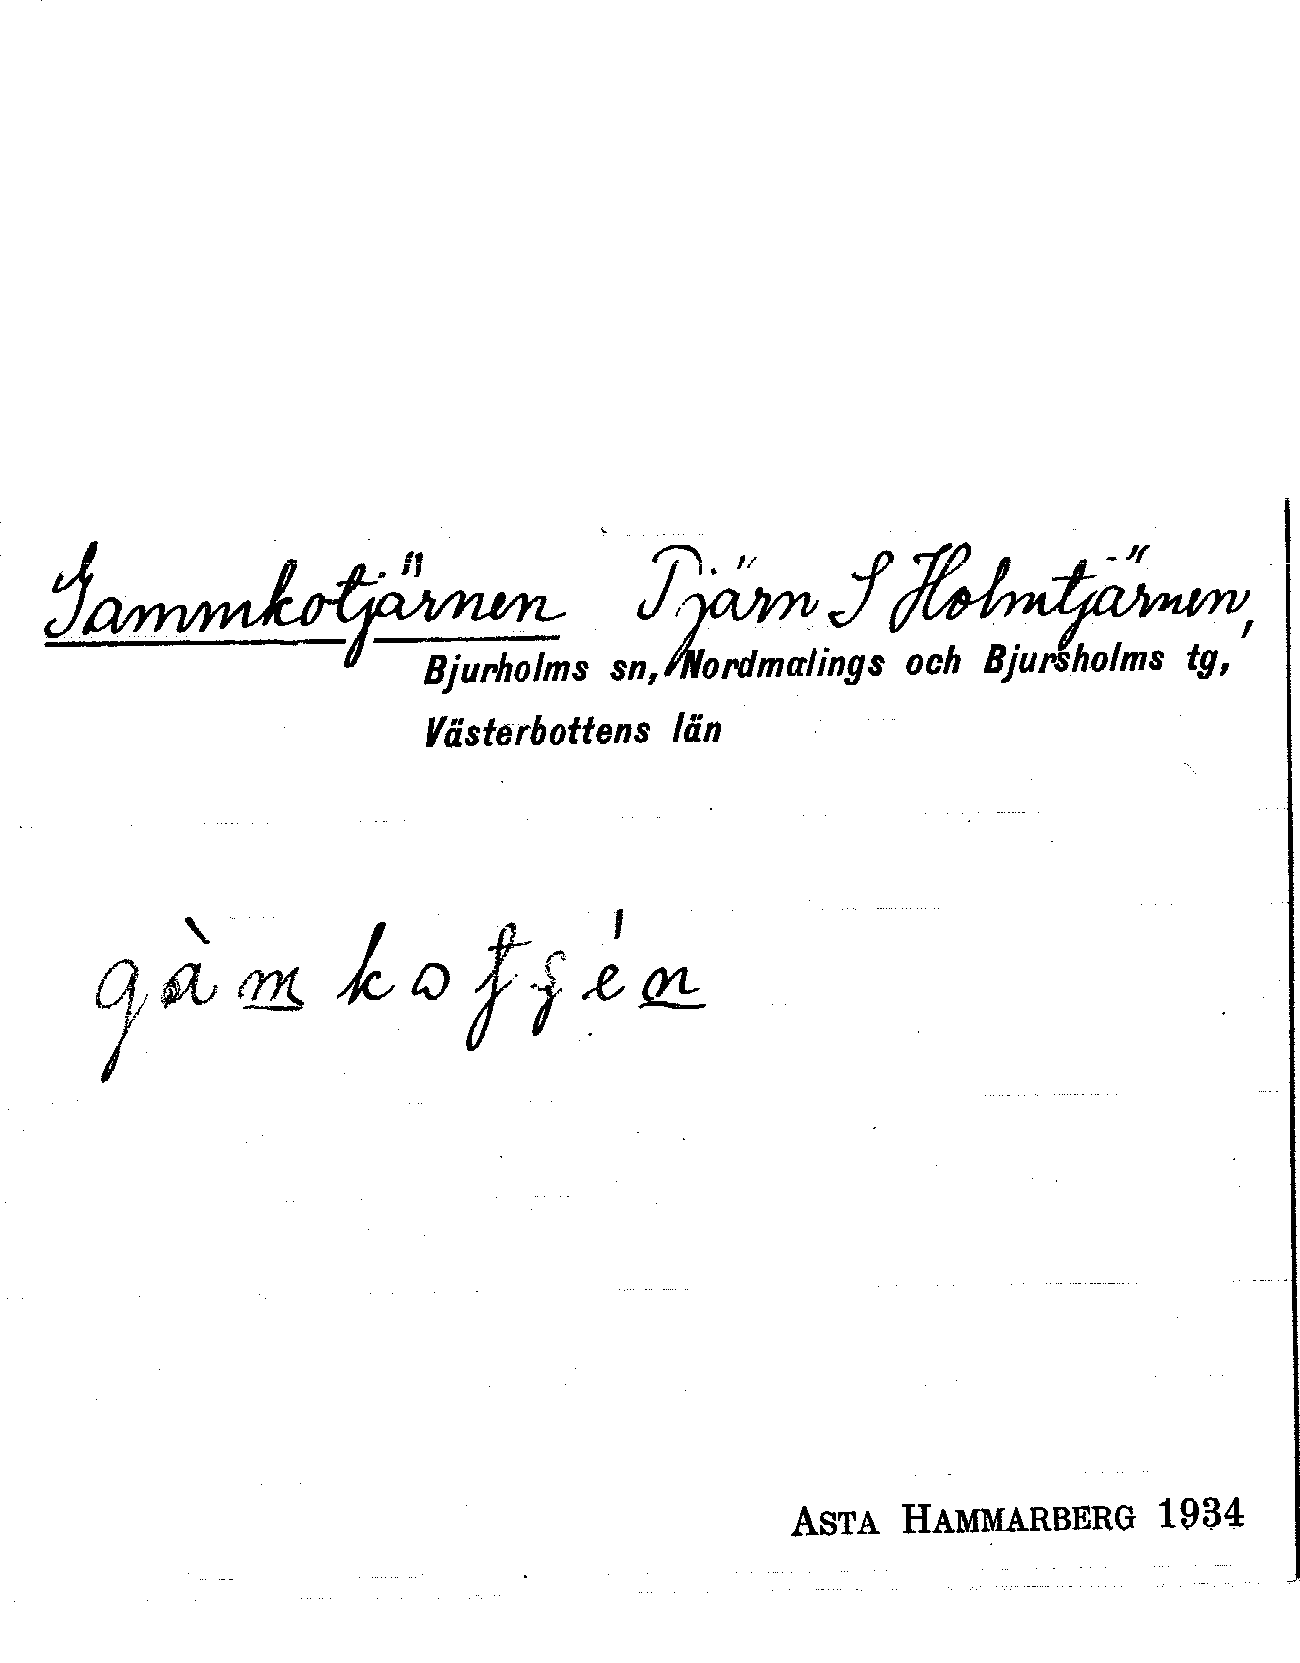 Gammkotjärnen Tjärn S Holmtjärnen,
Bjurholms sn, Nordmalings och Bjursholms tg,
Västerbottens län
ASTA HAMMARBERG 1934